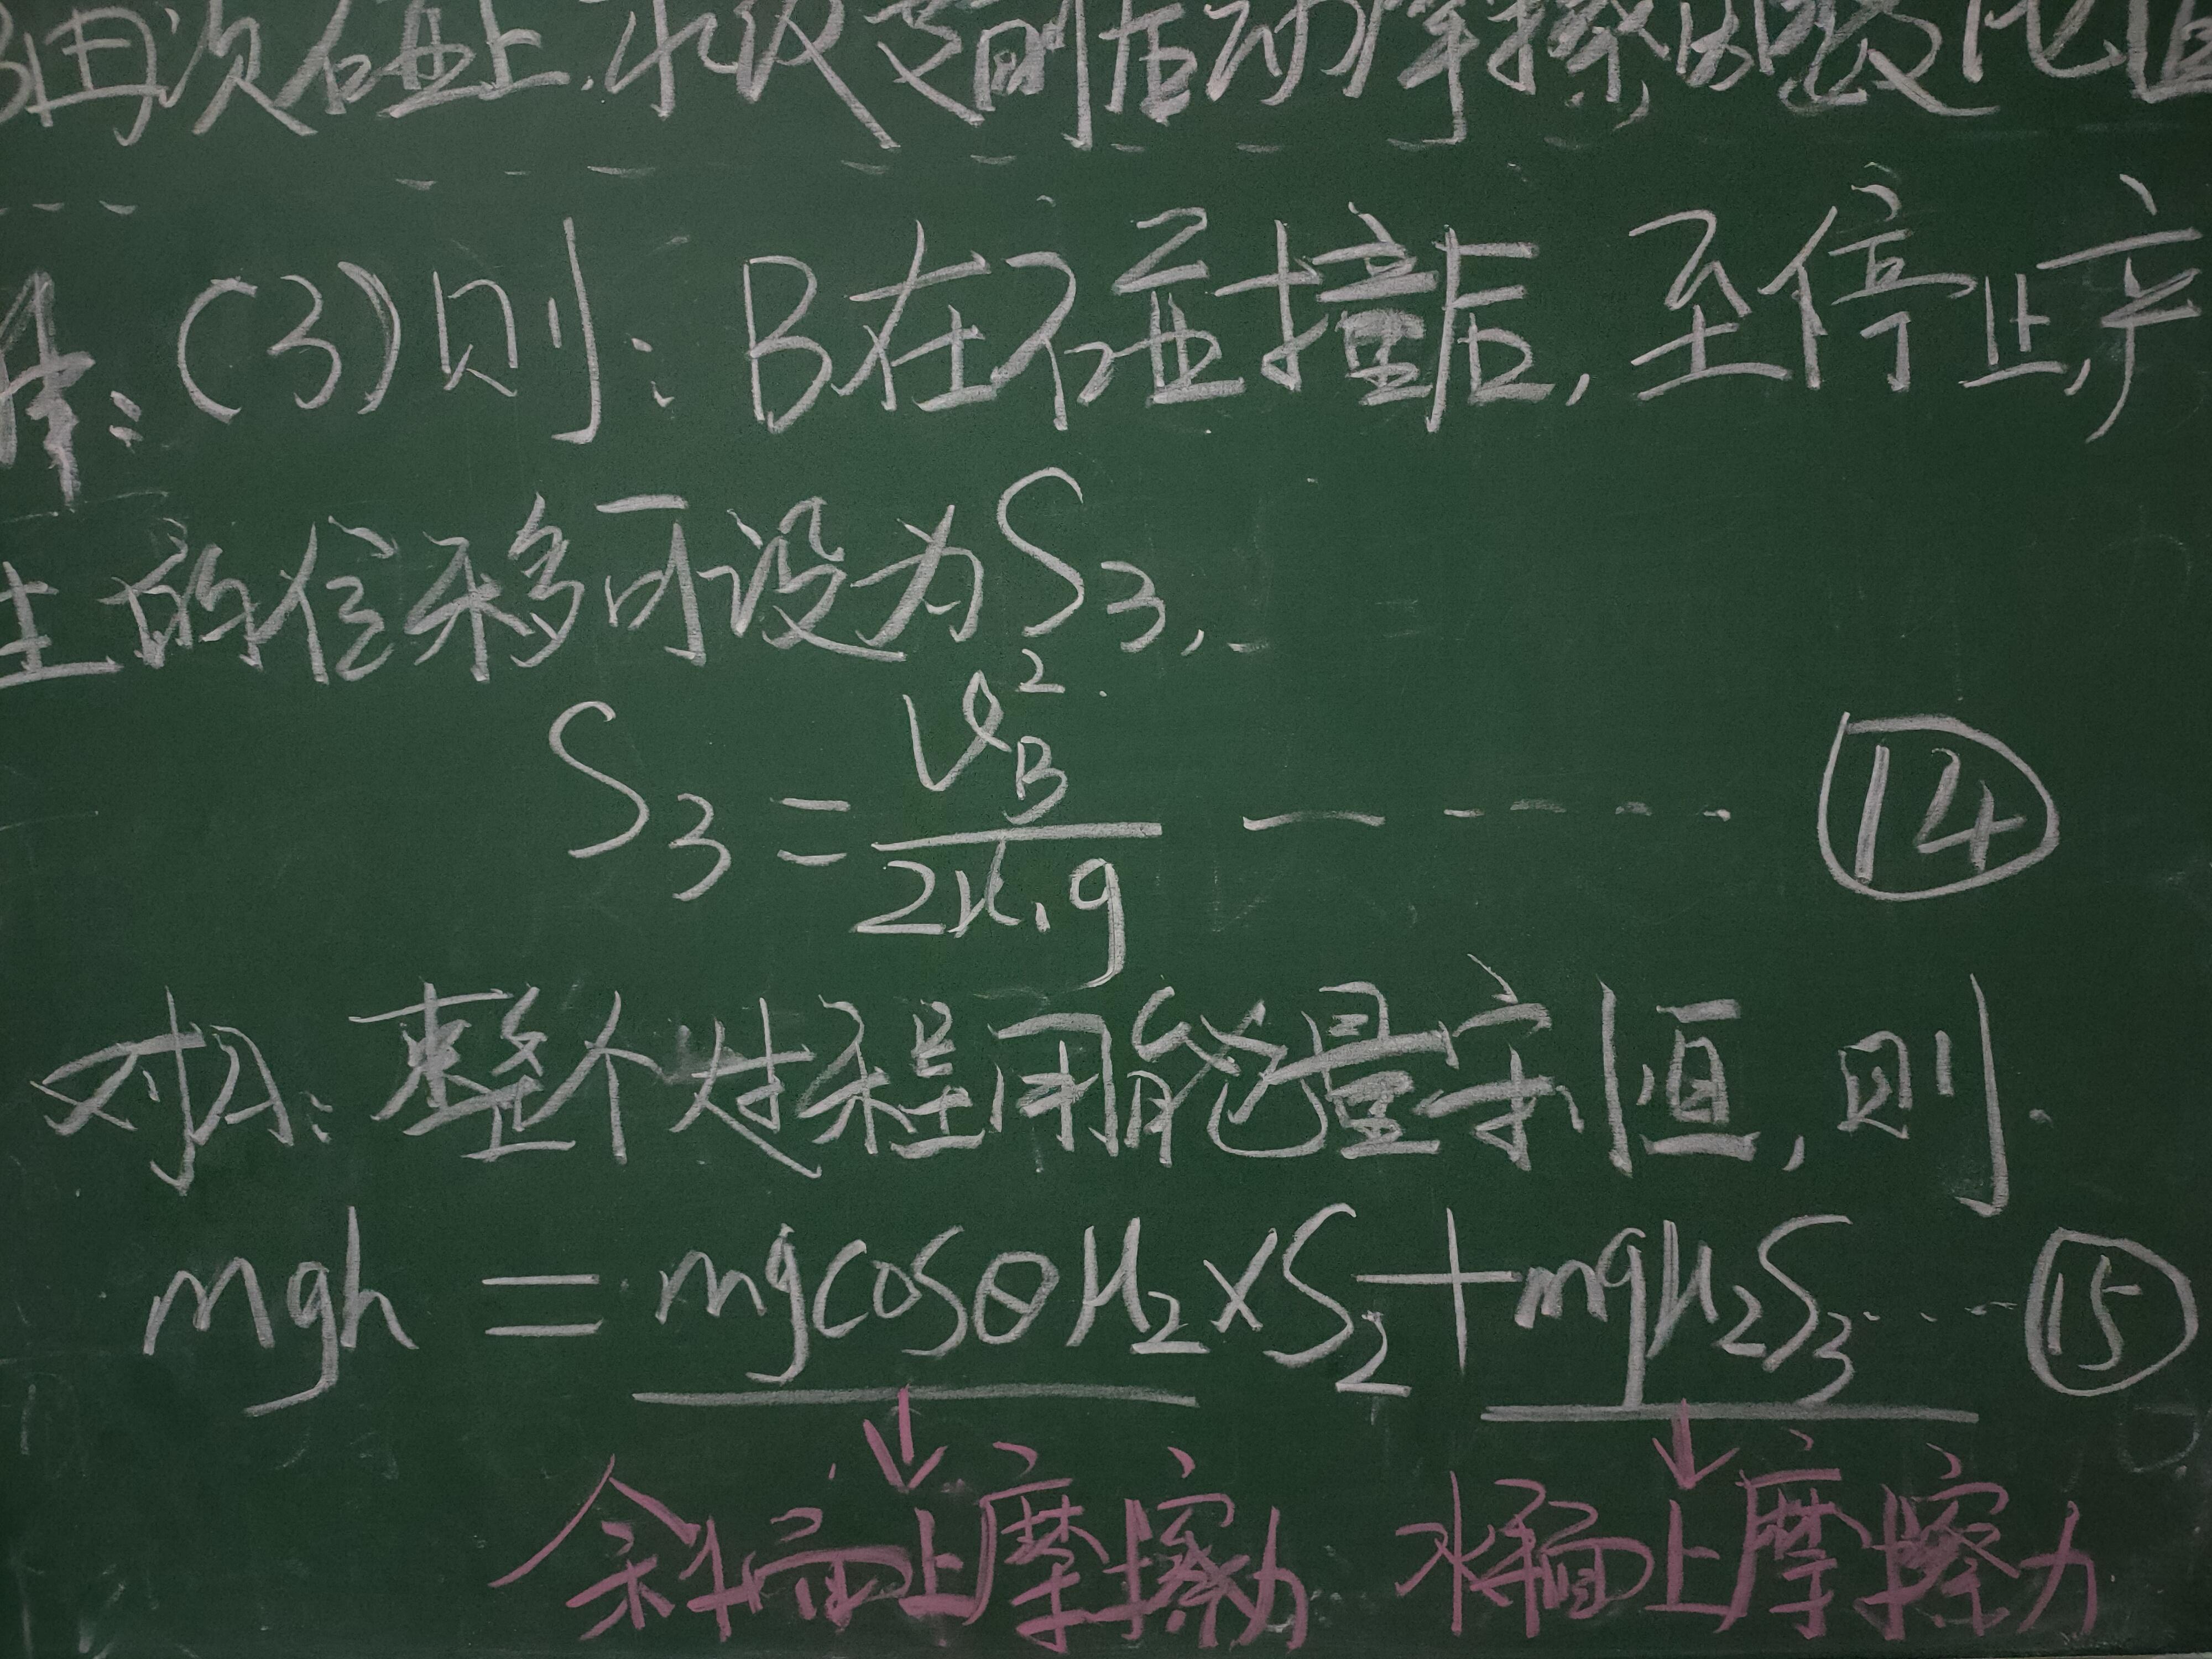 B再次石碰上,求改变前后动摩擦的变化值
解:(3)则:B在石碰撞后,至停止,产
生的位移可设为S₃,
S₃=v_B²/2μ₁g ------⑭
对A:整个过程用能量守恒,则
mgh = mgcosθμ₂×S₂+mgμ₂S₃……⑮
斜面上摩擦力 水平面上摩擦力